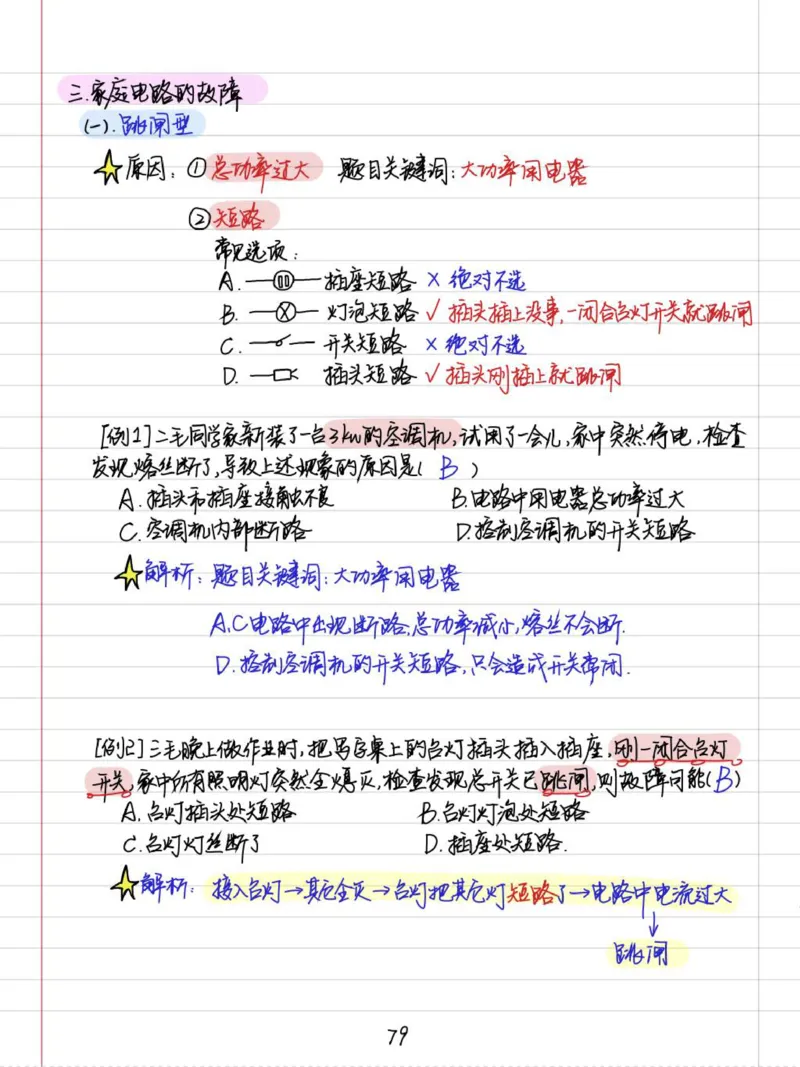 三.家庭电路的故障
(一).跳闸型
原因:①总功率过大 题目关键词:大功率用电器
②短路
常见选项:
A. 插座短路 × 绝对不选
B. 灯泡短路 ✓ 插头插上没事,一闭合台灯开关就跳闸
C. 开关短路 × 绝对不选
D. 插头短路 ✓ 插头刚插上就跳闸
[例1]二毛同学家新装了一台3kw的空调机,试用了一会儿,家中突然停电,检查
发现熔丝断了,导致上述现象的原因是( B )
A.插头和插座接触不良 B.电路中用电器总功率过大
C.空调机内部断路 D.控制空调机的开关短路
解析:题目关键词:大功率用电器
A.C电路中出现断路,总功率减小,熔丝不会断.
D.控制空调机的开关短路,只会造成开关常闭.
[例2]三毛晚上做作业时,把写字桌上的台灯插头插入插座,刚一闭合台灯
开关,家中所有照明灯突然全熄灭,检查发现总开关已跳闸,则故障可能(B)
A.台灯插头处短路 B.台灯灯泡处短路
C.台灯灯丝断了 D.插座处短路.
解析:接入台灯→其它全灭→台灯把其它灯短路了→电路中电流过大
↓
跳闸
79